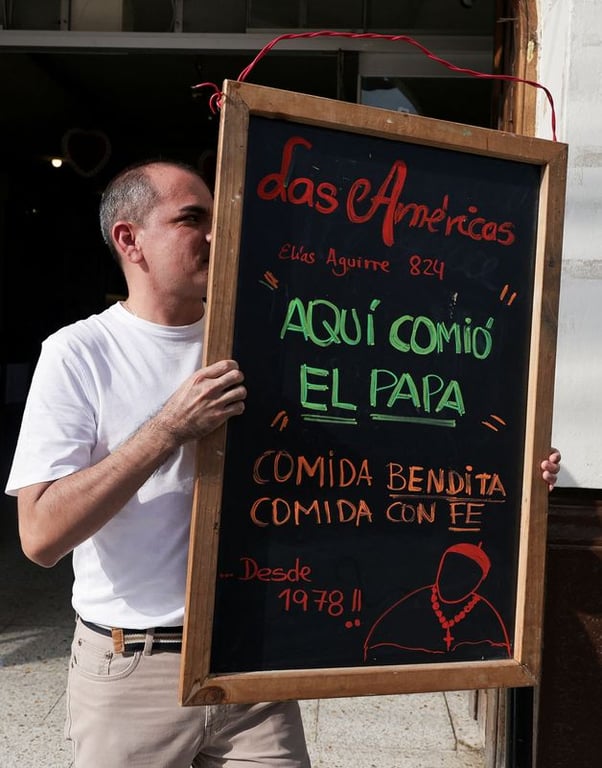 Las Américas
Elías Aguirre 824
AQUÍ COMIÓ
EL PAPA
COMIDA BENDITA
COMIDA CON FE
... Desde
1978!!